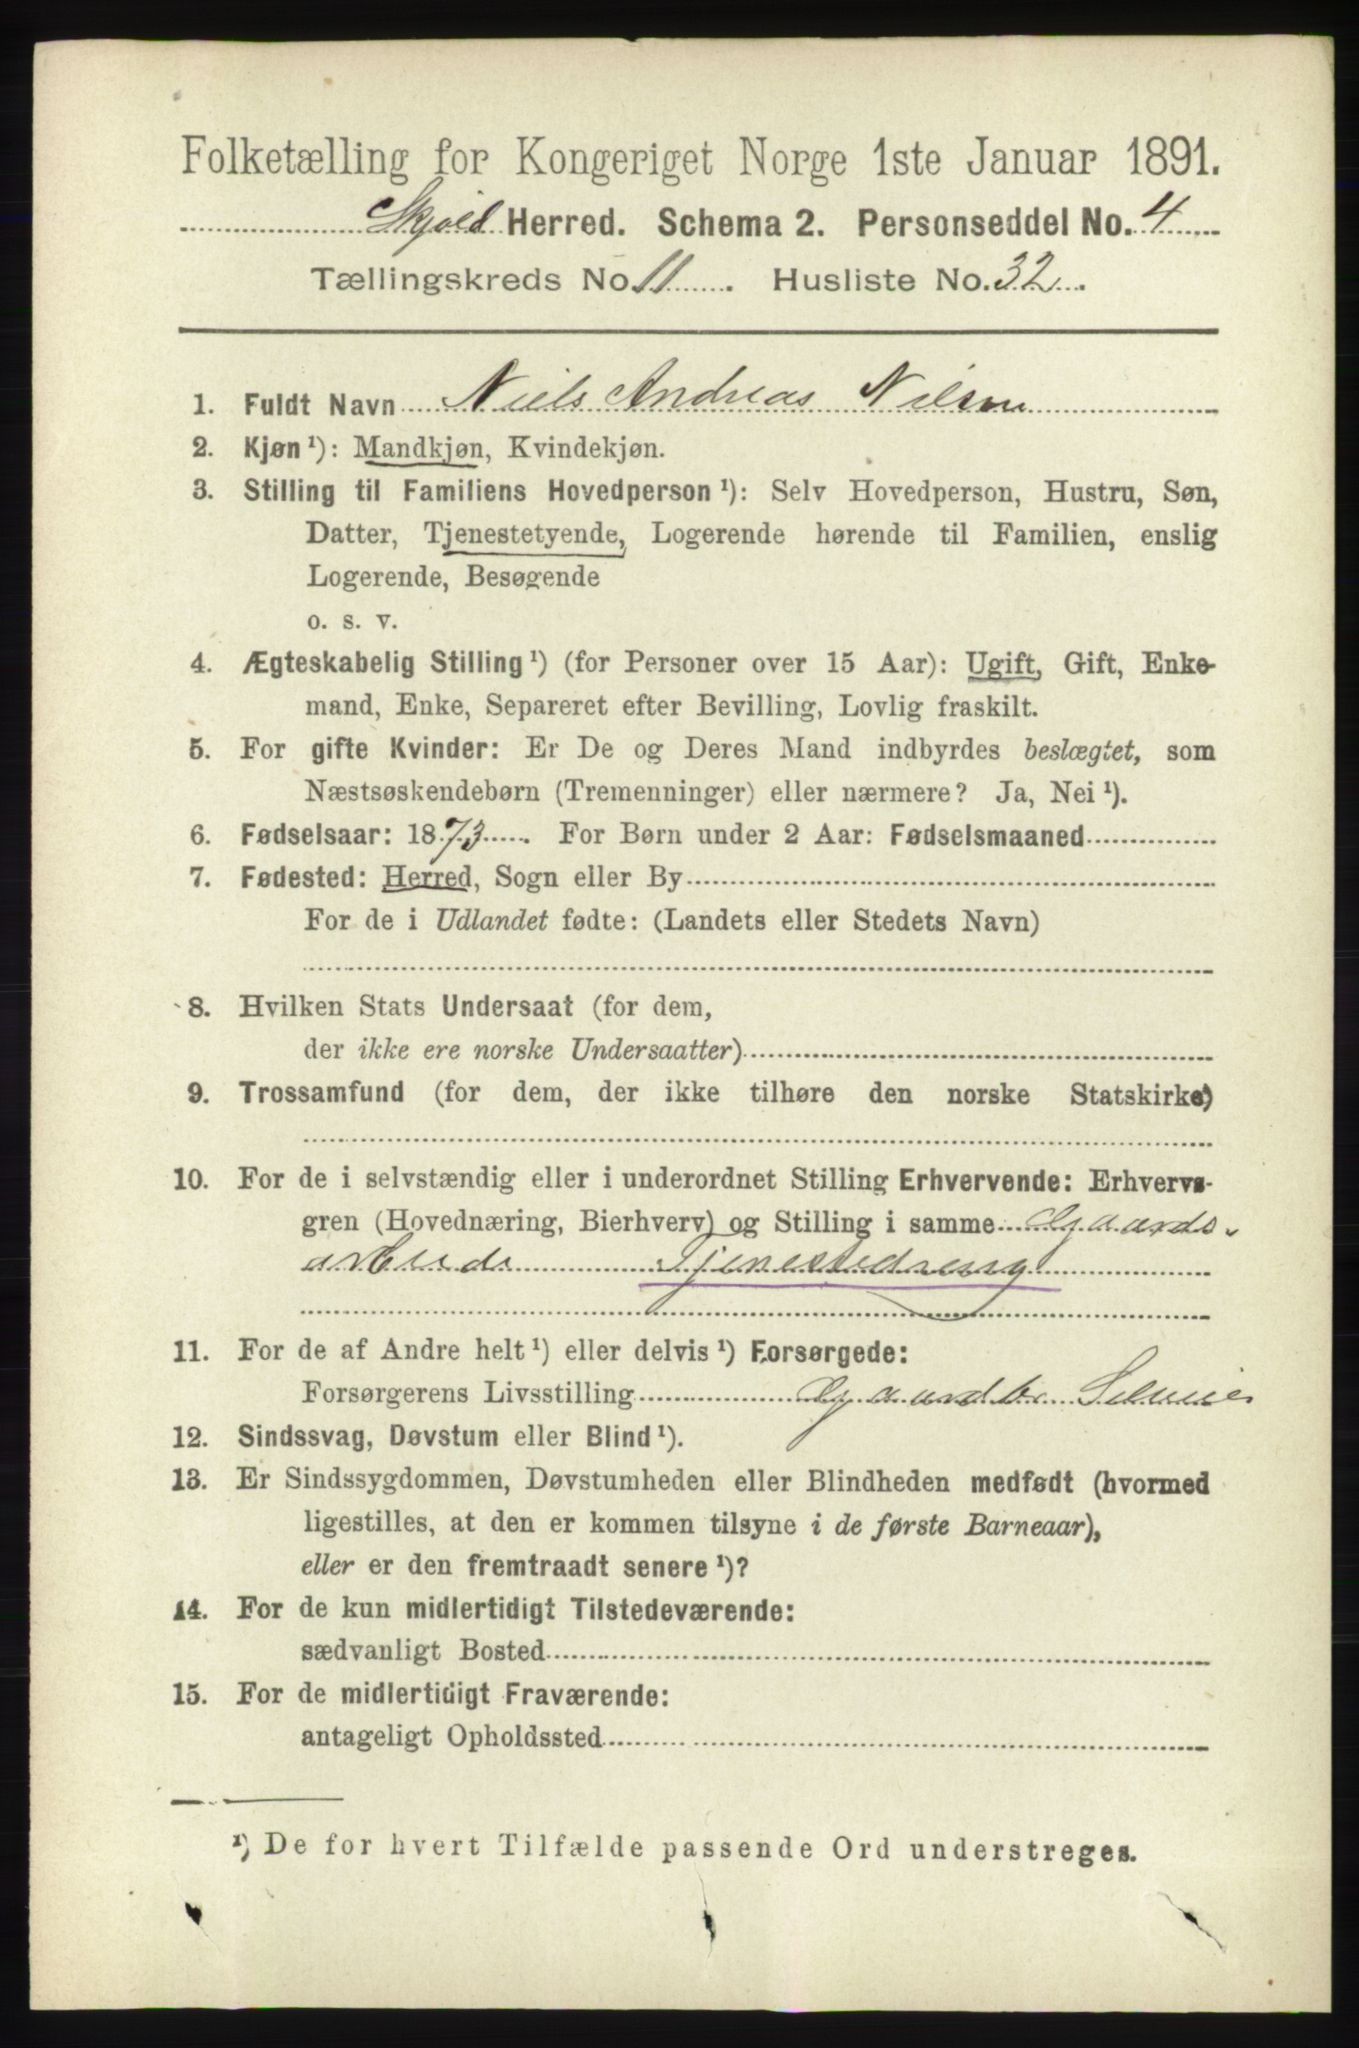 Folketælling for Kongeriget Norge 1ste Januar 1891.
Skjold Herred. Schema 2. Personseddel No. 4
Tællingskreds No. 11. Husliste No. 32.
1. Fuldt Navn Niels Andreas Nilsen
2. Kjøn ¹): Mandkjøn, Kvindekjøn.
3. Stilling til Familiens Hovedperson ¹): Selv Hovedperson, Hustru, Søn,
Datter, Tjenestetyende, Logerende hørende til Familien, enslig
Logerende, Besøgende
o. s. v.
4. Ægteskabelig Stilling ¹) (for Personer over 15 Aar): Ugift, Gift, Enke-
mand, Enke, Separeret efter Bevilling, Lovlig fraskilt.
5. For gifte Kvinder: Er De og Deres Mand indbyrdes beslægtet, som
Næstsøskendebørn (Tremenninger) eller nærmere? Ja, Nei ¹).
6. Fødselsaar: 1873. For Børn under 2 Aar: Fødselsmaaned
7. Fødested: Herred, Sogn eller By
For de i Udlandet fødte: (Landets eller Stedets Navn)
8. Hvilken Stats Undersaat (for dem,
der ikke ere norske Undersaatter)
9. Trossamfund (for dem, der ikke tilhøre den norske Statskirke)
10. For de i selvstændig eller i underordnet Stilling Erhvervende: Erhvervs-
gren (Hovednæring, Bierhverv) og Stilling i samme Gaards-
arbeide Tjenestedreng
11. For de af Andre helt ¹) eller delvis ¹) Forsørgede:
Forsørgerens Livsstilling Gaardbr.
12. Sindssvag, Døvstum eller Blind ¹).
13. Er Sindssygdommen, Døvstumheden eller Blindheden medfødt (hvormed
ligestilles, at den er kommen tilsyne i de første Barneaar),
eller er den fremtraadt senere ¹)?
14. For de kun midlertidigt Tilstedeværende:
sædvanligt Bosted
15. For de midlertidigt Fraværende:
antageligt Opholdssted
¹) De for hvert Tilfælde passende Ord understreges.